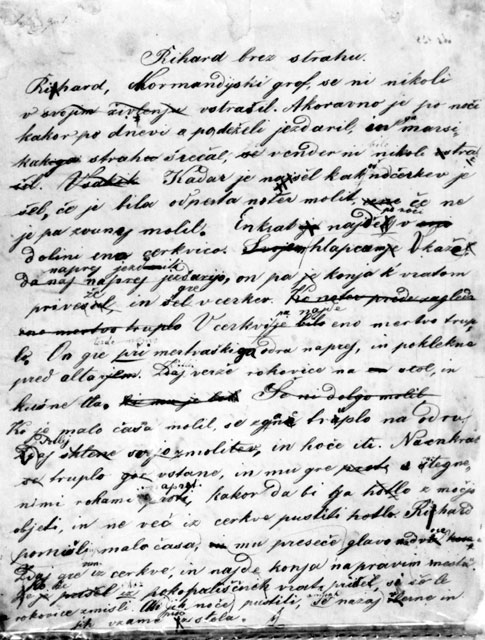 Rihard brez strahu.
Rihard, Normandijski grof, se ni nikoli
v svojim življenju vstrašil. Akoravno je po noči
kakor po dnevi a po deželi jezdaril, in marsi
kakega straha srečal, se vender ni nikoli vstra
šil. Kadar je našel kak nočarkev je
šel, če je bila odpesta noter molit, če ne
je pa zvunaj molil. Enkrat najde po noči v
dolini eno cerkvico. Svojem hlapcam vkaže
da naj naprej jezdarijo, on pa je konja k vratom
privezal, in šel v cerkev.
eno mertvo truplo V cerkvi je bilo eno mertvo trup
lo. On gre pri mertvaškiga odra naprej, in poklekne
pred altarjem. Zdaj verže rokovice na stol, in
kušne tla. Se ni dolgo molil
Ko je malo časa molil, se truplo na odru
svojo molitev, in hoče iti. Naenkrat
se truplo vstane, in mu gre s štegne
nimi rokami proti, kakor da bi ga hotlo z močjo
objeti, in ne več iz cerkve pustiti hotlo. Rihard
pomisli malo časa, mu preseče glavo
Zdaj gre iz cerkve, in najde konja na pravim mesti.
pokopališčnih vrat prišel, se
rokovice zmisli. noče pustiti, nazaj in
jih vzame stola.